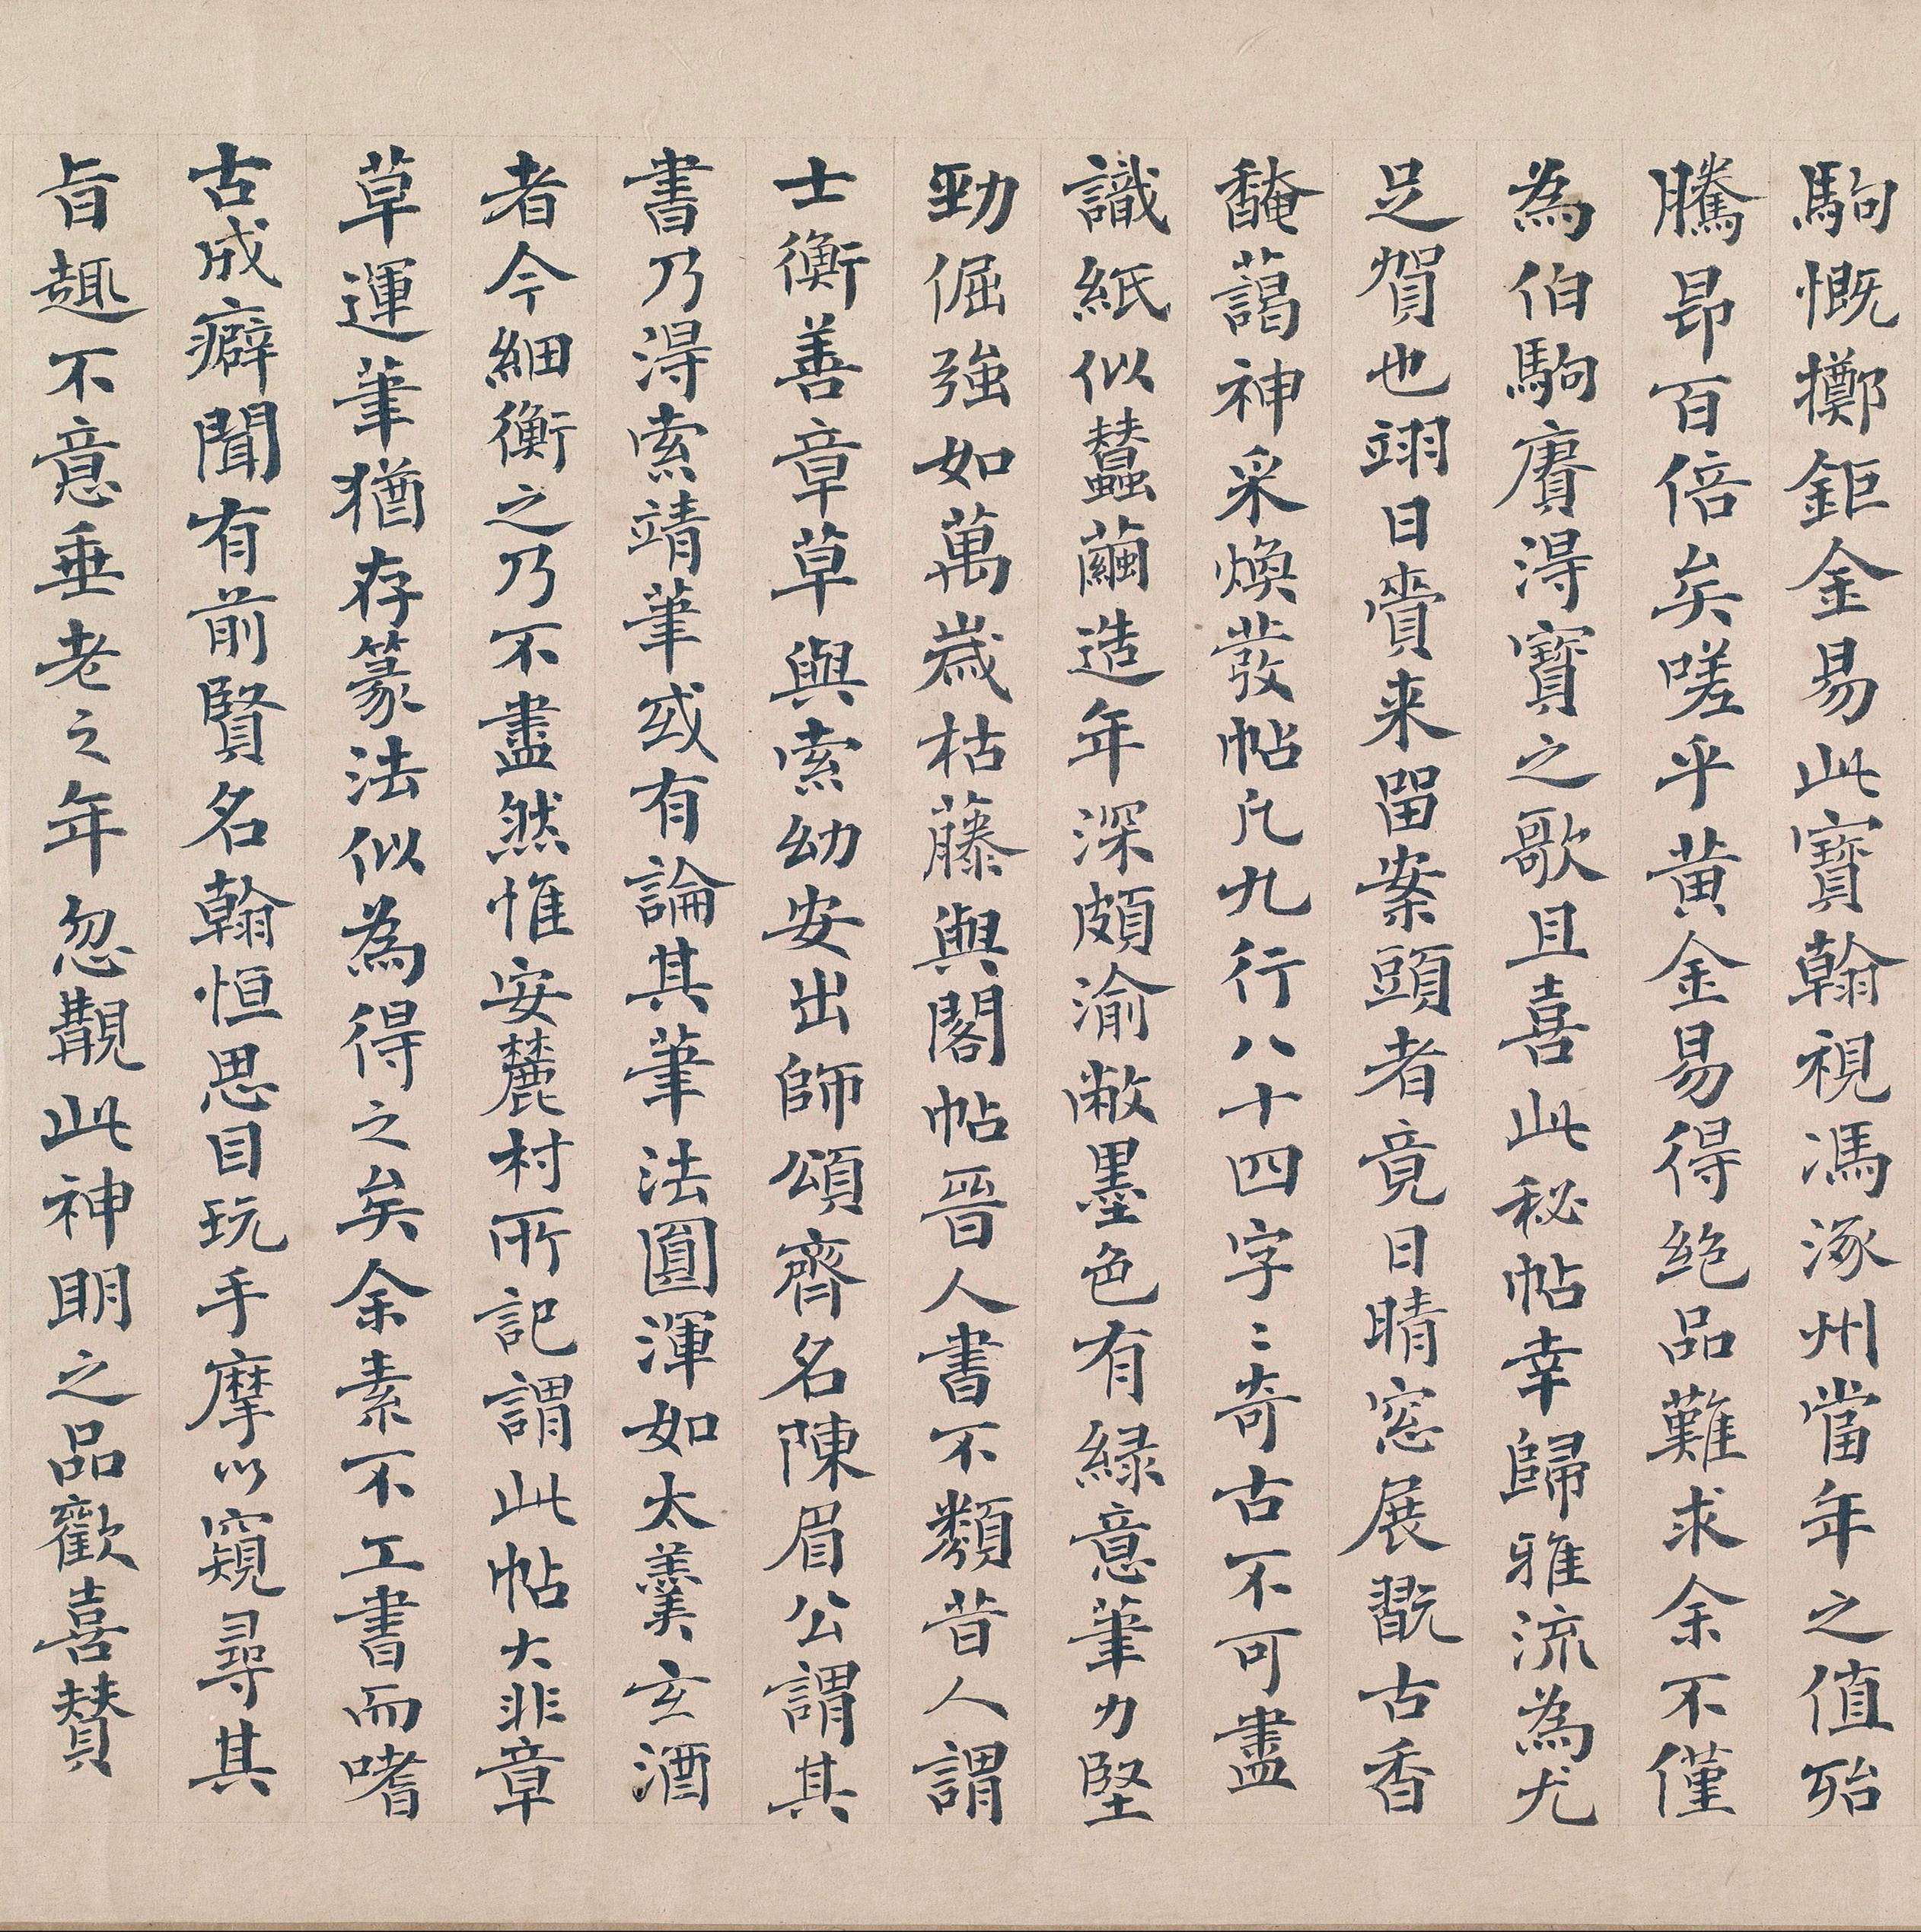 駒慨擲鉅金易此寶翰視馮涿州當年之值殆
騰昂百倍矣嗟乎黃金易得絶品難求余不僅
為伯駒賡得寶之歌且喜此秘帖幸歸雅流為尤
足賀也翊日賫来留案頭者竟日晴窓展翫古香
馣藹神采煥發帖凡九行八十四字〻奇古不可盡
識紙似蠶繭造年深頗渝敝墨色有緑意筆力堅
勁倔強如萬歲枯藤與閣帖晉人書不類昔人謂
士衡善章草與索幼安出師頌齊名陳眉公謂其
書乃得索靖筆或有論其筆法圓渾如太羹玄酒
者今細衡之乃不盡然惟安麓村所記謂此帖大非章
草運筆猶存篆法似為得之矣余素不工書而嗜
古成癖聞有前賢名翰恒思目玩手摩以窺尋其
旨趣不意垂老之年忽覩此神明之品歡喜贊